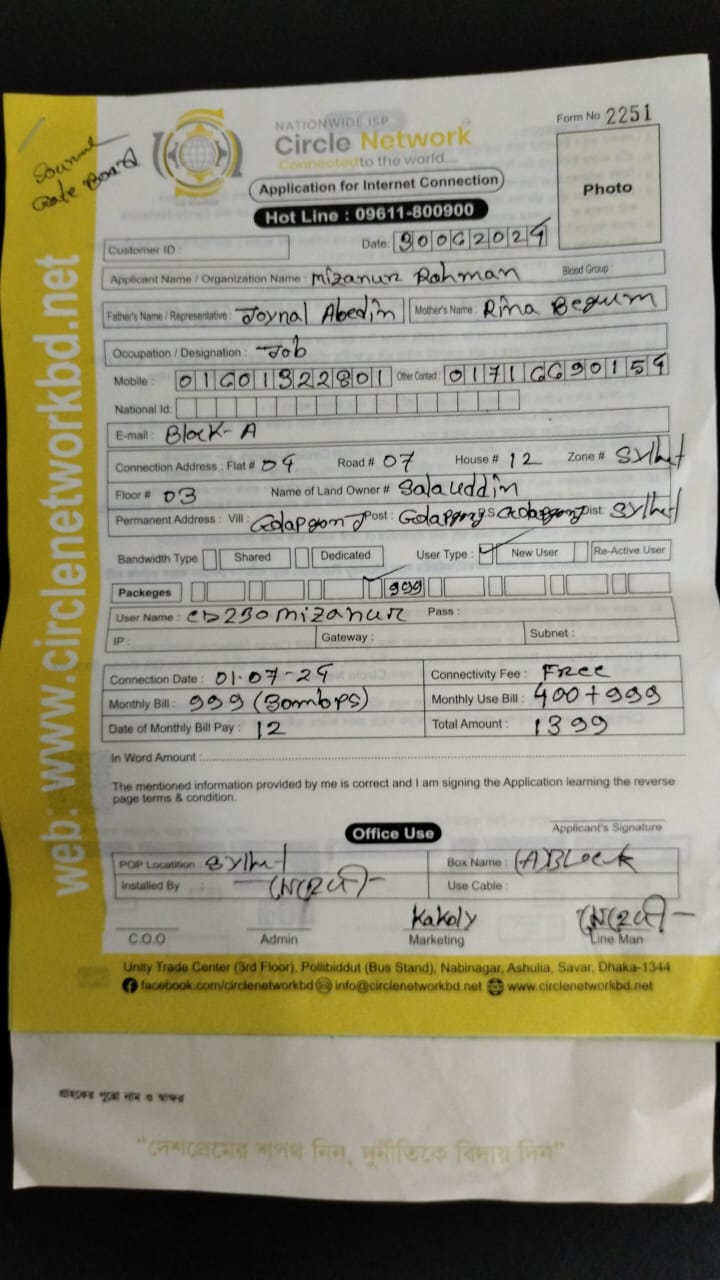 NATIONWIDE ISP
Circle Network
Connected to the world....
Form No 2251
Photo
Gate Board
Application for Internet Connection
Hot Line : 09611-800900
Customer ID : Date: 30062024
Applicant Name / Organization Name : Mizanur Rahman Blood Group :
Father's Name / Representative : Joynal Abedin Mother's Name : Rina Begum
Occupation / Designation : Job
Mobile : 01601322801 Other Contact : 01716690154
National Id:
E-mail : Block-A
Connection Address : Flat # 04 Road # 07 House # 12 Zone # Sylhet
Floor # 03 Name of Land Owner # Salauddin
Permanent Address : Vill : Golapgonj Post : Golapgonj Dist: Sylhet
Bandwidth Type Shared Dedicated User Type : New User Re-Active User
Packeges 999
User Name : CD230mizanur Pass :
IP : Gateway : Subnet :
Connection Date : 01-07-24 Connectivity Fee : Free
Monthly Bill : 999 (30mbps) Monthly Use Bill : 400+999
Date of Monthly Bill Pay : 12 Total Amount : 1399
In Word Amount :
The mentioned information provided by me is correct and I am signing the Application learning the reverse
page terms & condition.
Applicant's Signature
Office Use
POP Locatition : Sylhet Box Name : (A)Block
Installed By : Use Cable :
Kakoly
C.O.O Admin Marketing Line Man
Unity Trade Center (3rd Floor), Pollibiddut (Bus Stand), Nabinagar, Ashulia, Savar, Dhaka-1344
facebook.com/circlenetworkbd info@circlenetworkbd.net www.circlenetworkbd.net
web: www.circlenetworkbd.net
গ্রাহকের পুরো নাম ও স্বাক্ষর
"দেশপ্রেমের শপথ নিন, দুর্নীতিকে বিদায় দিন"